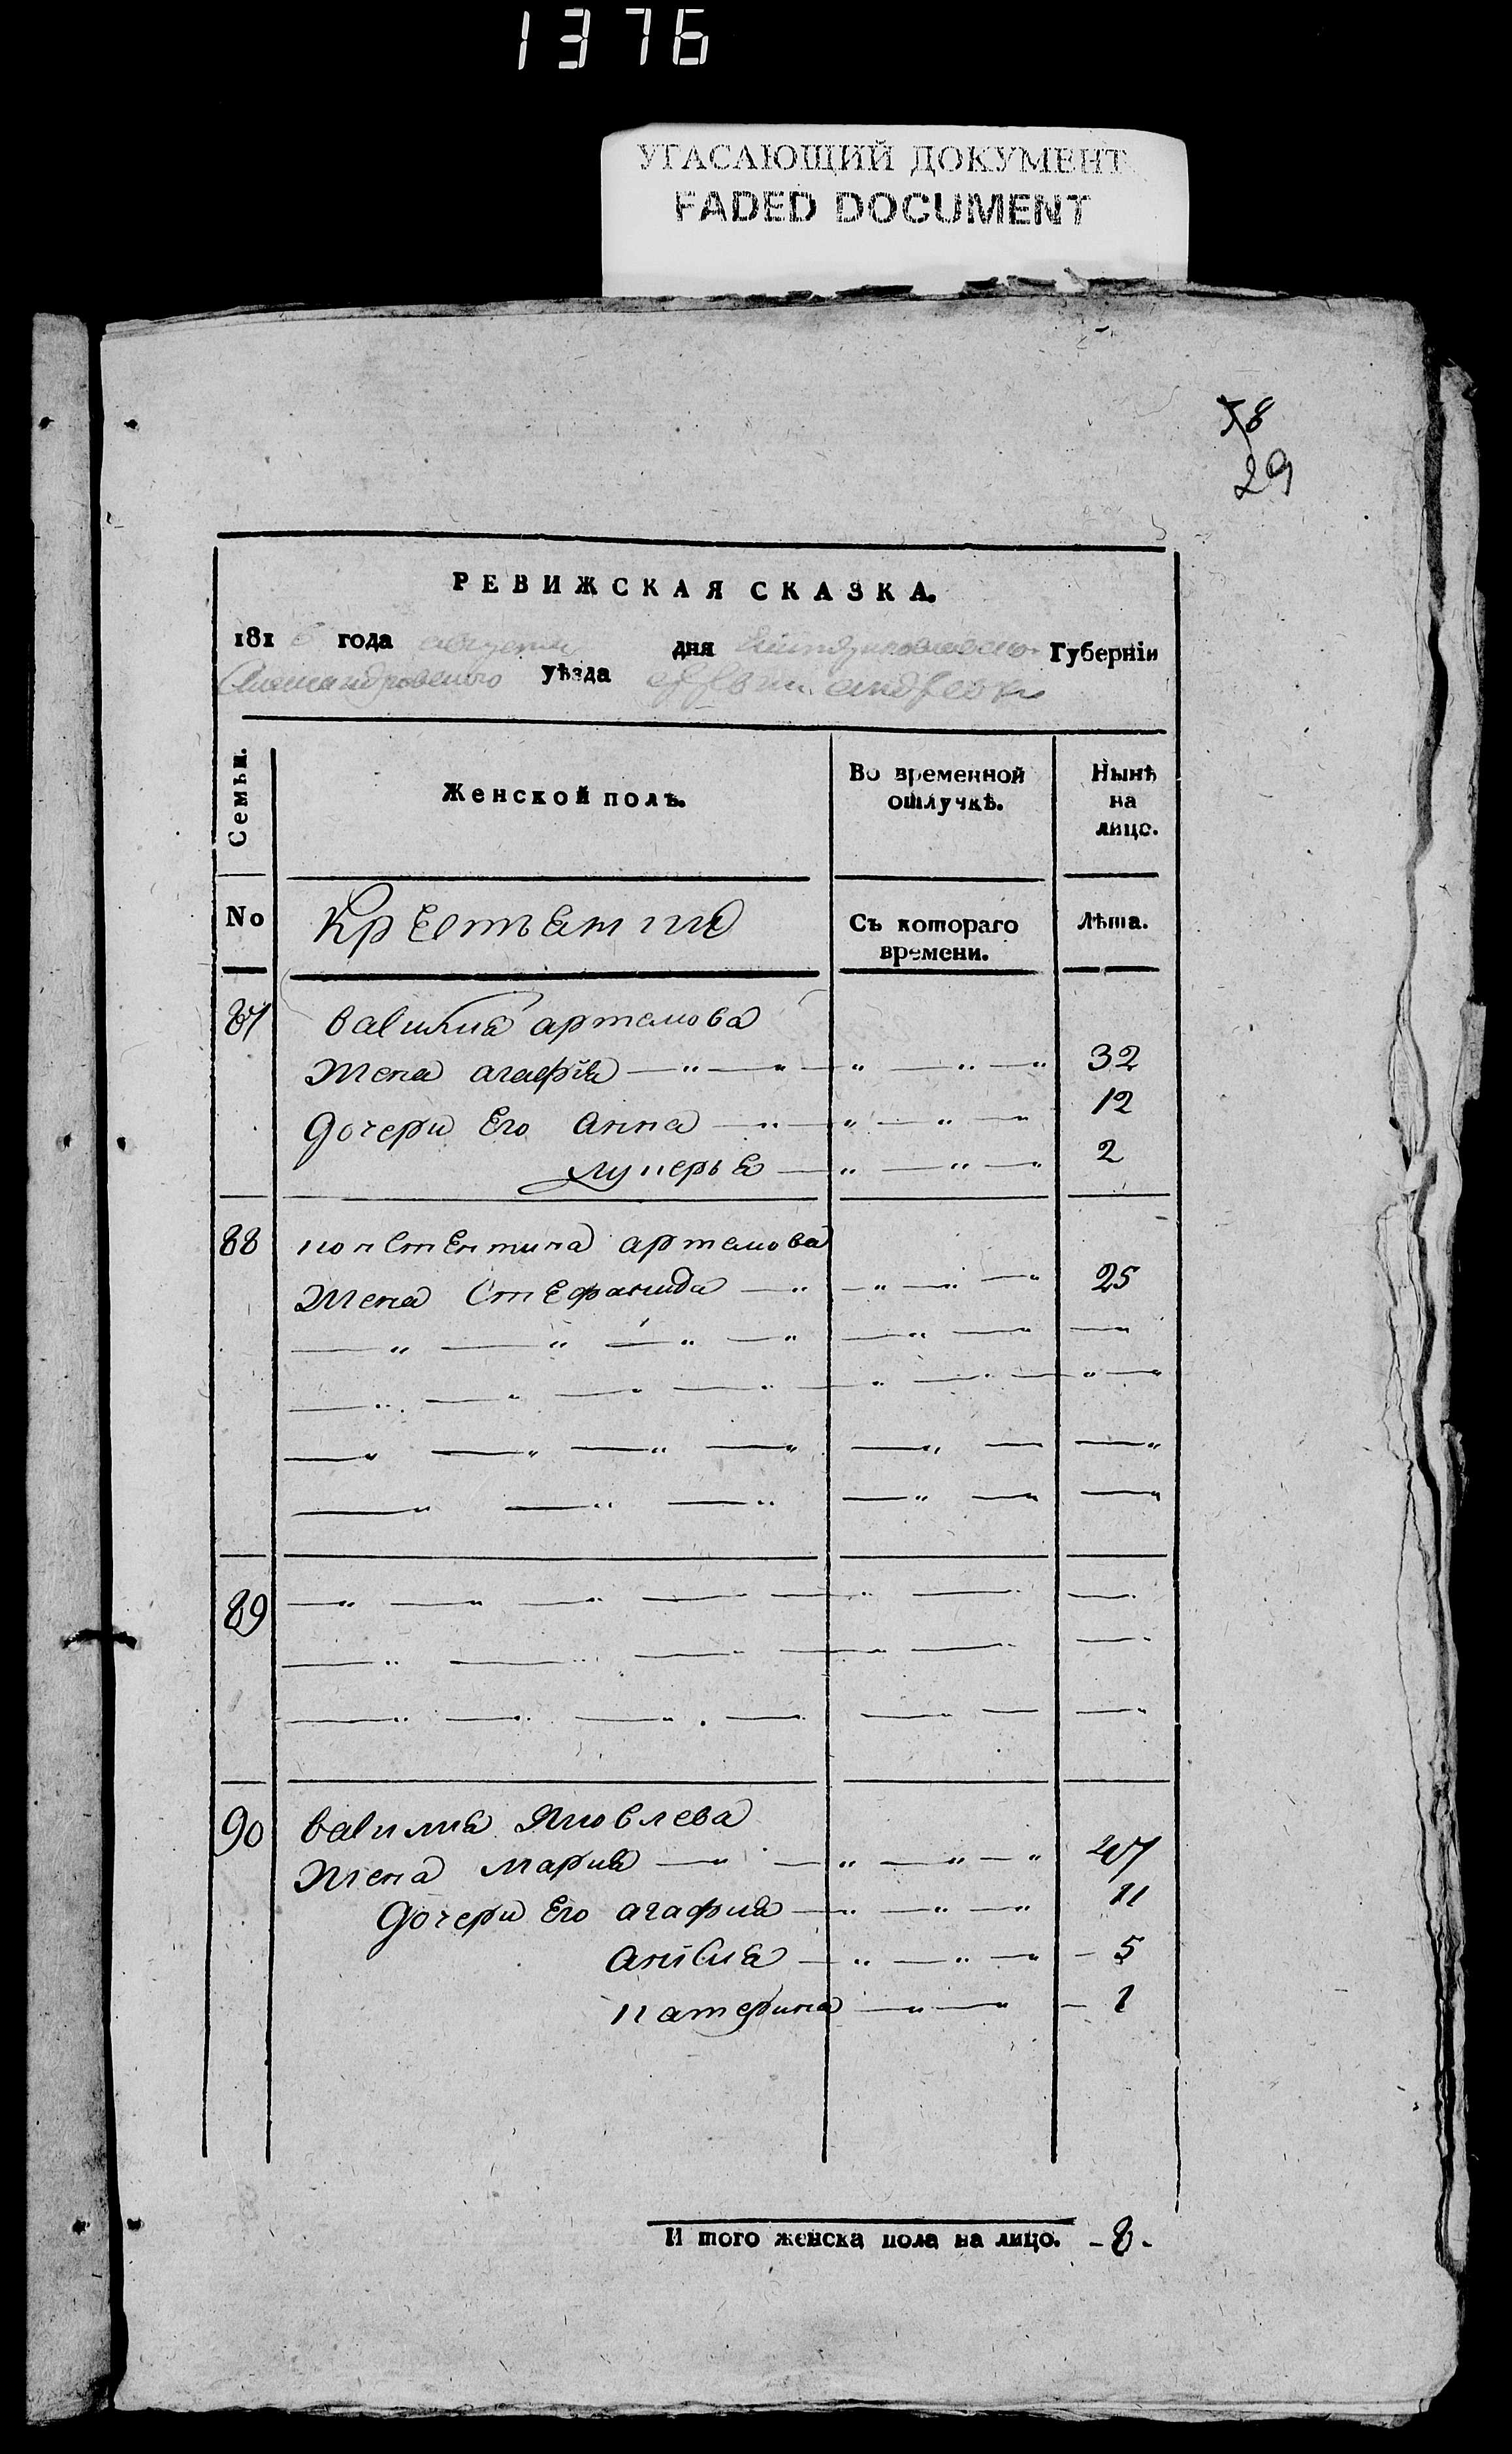 1376
УГАСАЮЩИЙ ДОКУМЕНТ
FADED DOCUMENT
58
29
РЕВИЖСКАЯ СКАЗКА.
1816 года августа дня Екатеринославской Губерніи
Александровского уѣзда
Семьи.
Женской полъ.
Во временной отлучкѣ.
Нынѣ на лицо.
No
Крестьянъ
Съ котораго времени.
Лѣта.
87 василия артемова
Жена агафия 32
дочери Его анна 12
лукерья 2
88 констентина артемова
Жена Стефанида 25
89
90 василия Яковлева
Жена мария 27
дочери Его агафия 11
анисия - 5
катерина - 1
И того женска пола на лицо. - 8 -